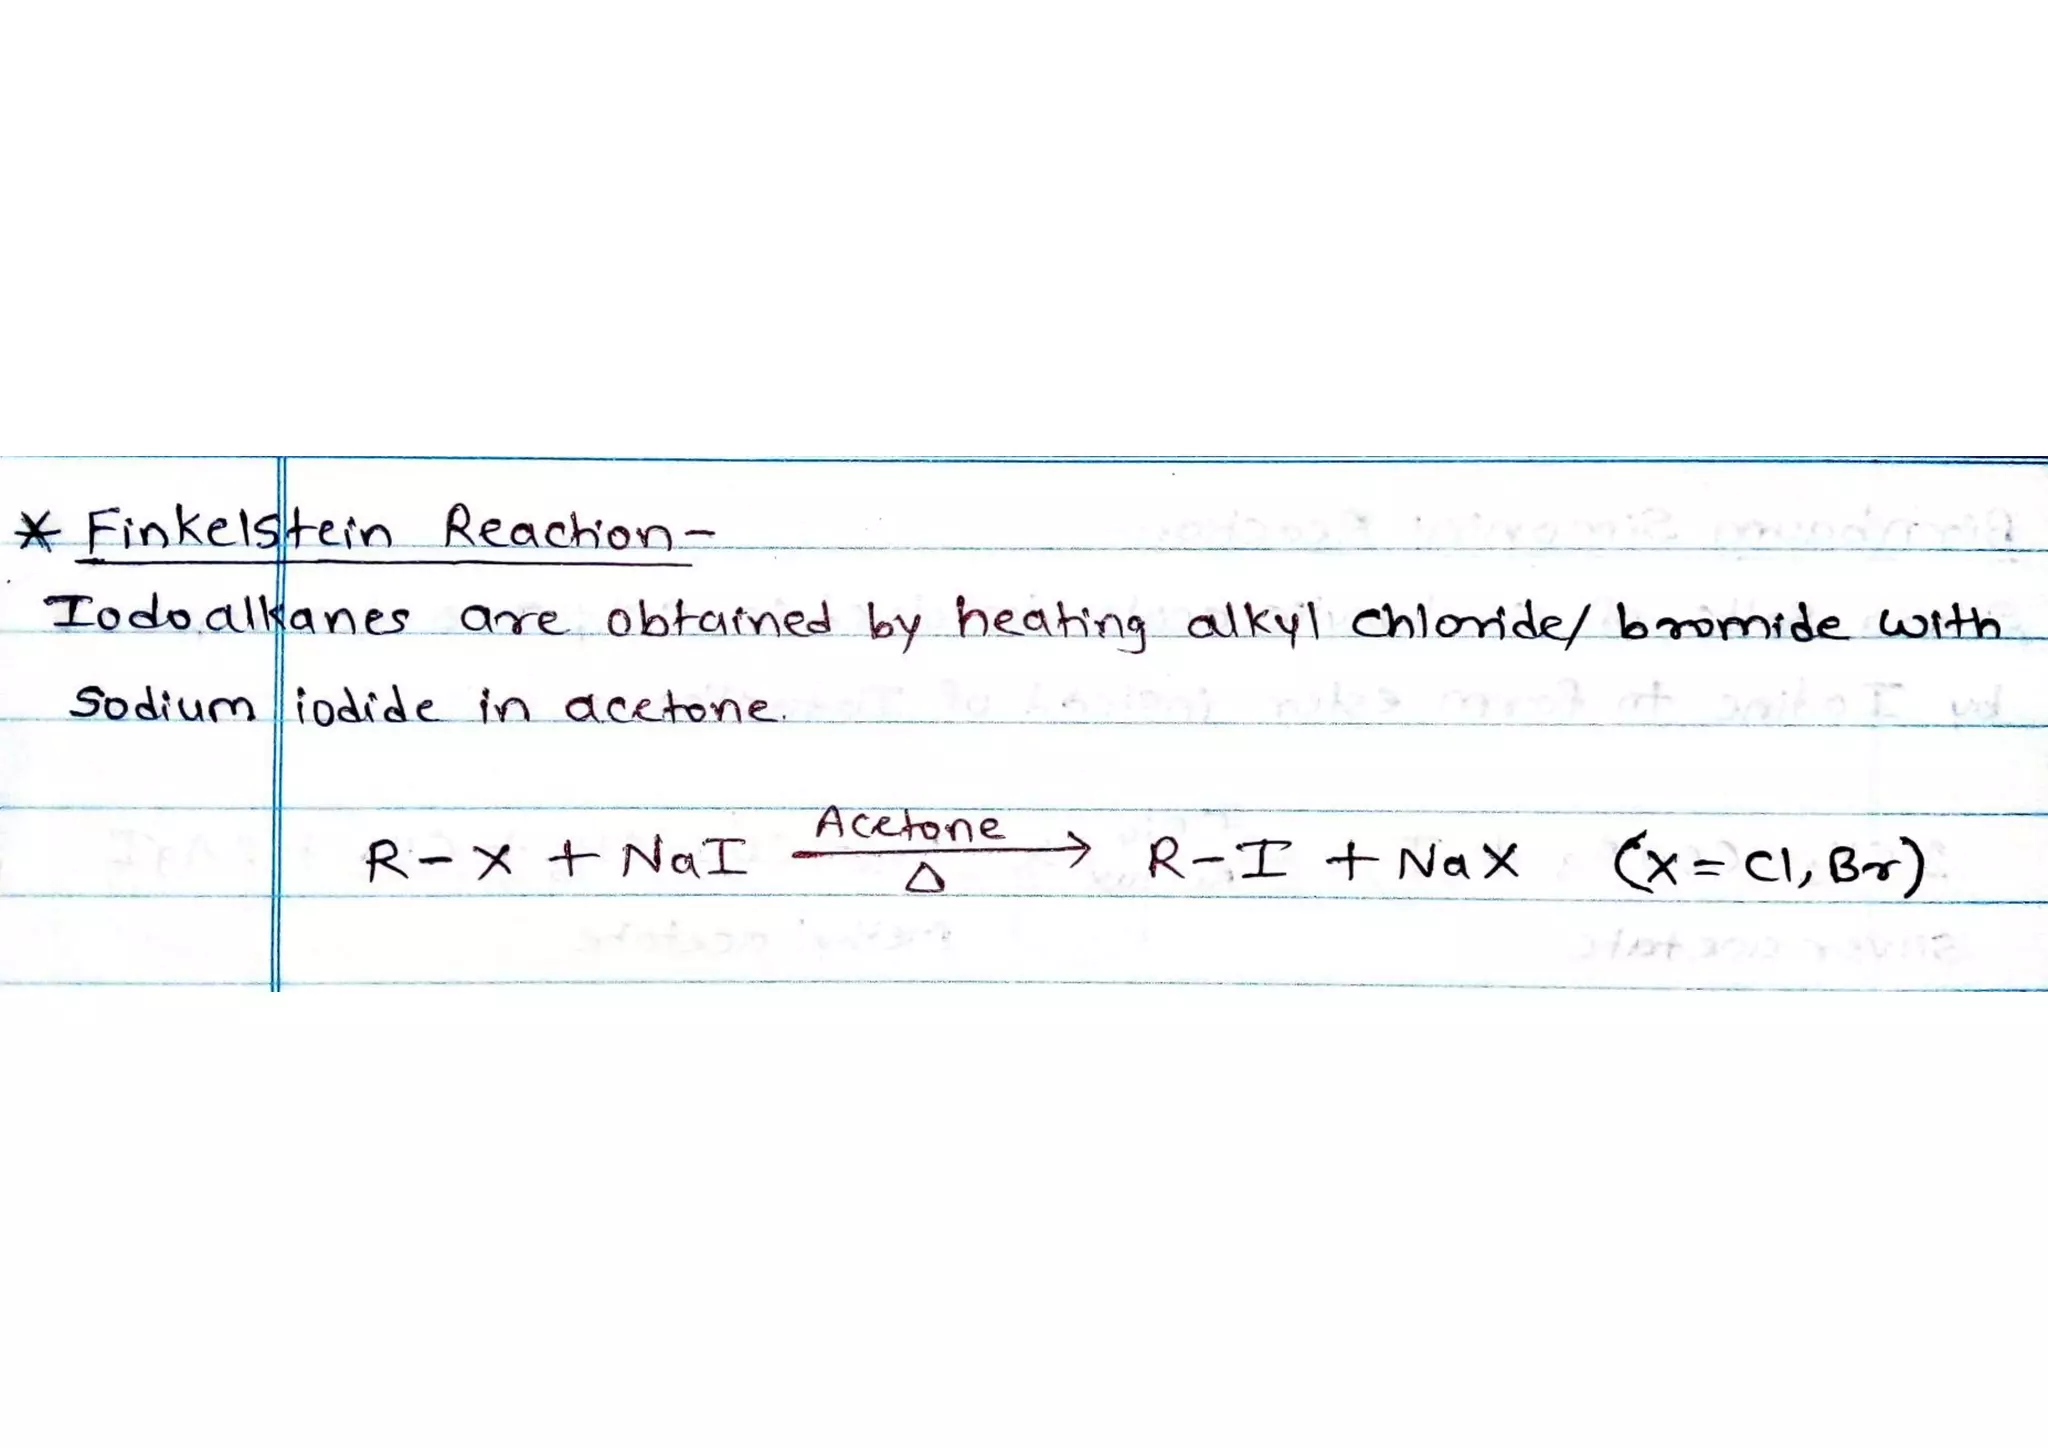 * Finkelstein Reaction -
Iodoalkanes are obtained by heating alkyl chloride/ bromide with
Sodium iodide in acetone.
Acetone
R - X + NaI ⟶ R - I + NaX (X = Cl, Br)
Δ